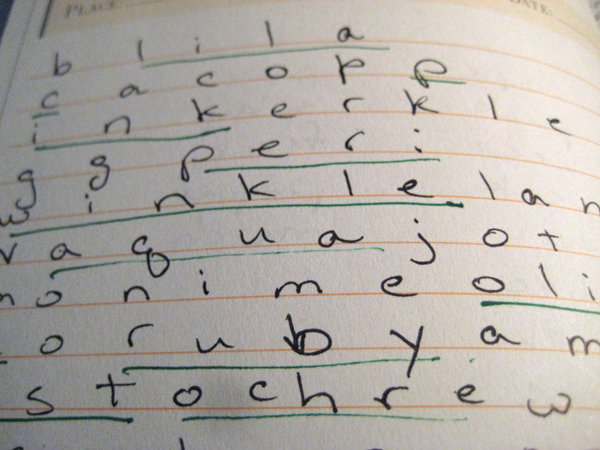 PLACE: DATE:
b l i l a
c a c o p p
i n k e r k l e
g g p e r i
w i n k l e l a n
v a q u a j o t
n o n i m e o l i
o r u b y a m
s t o c h r e w